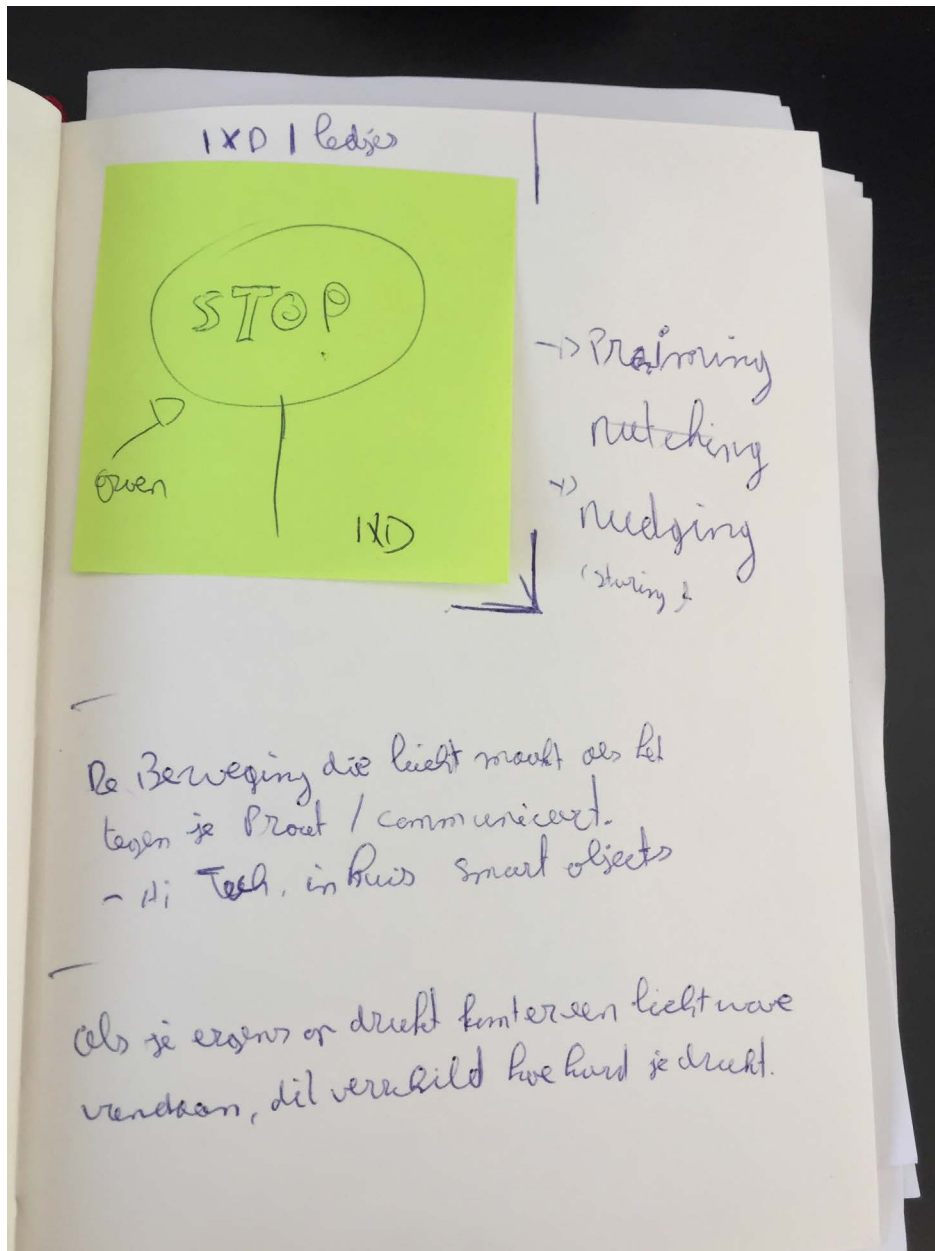 IXD | ledjes
STOP
groen
IXD
-> Priming
nutching
-> nudging
(sturing)
De Beweging die licht maakt als het
tegen je Praat / communiceert.
- Hi Tech, in huis smart objects
als je ergens op drukt komt er een licht wave
vandaan, dit verschild hoe hard je drukt.